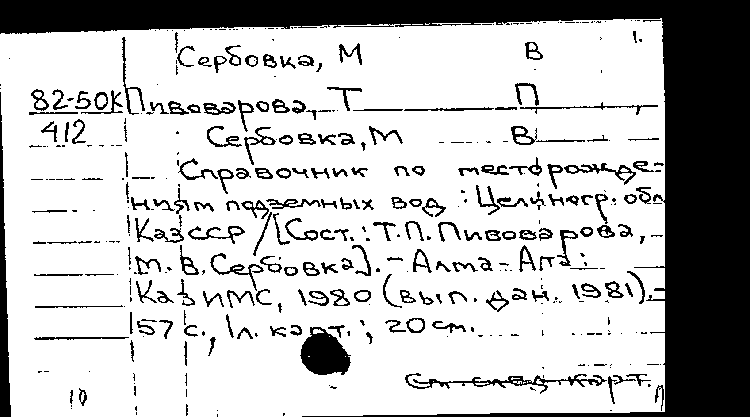 1.
Сербовка, М В
82-50К Пивоварова, Т П
412 Сербовка, М В
Справочник по месторожде-
ниям подземных вод : Целиногр. обл
КазССР / [Сост.: Т.П. Пивоварова,
М.В. Сербовка]. – Алма-Ата :
КазИМС, 1980 (вып. дан. 1981). –
57 с., 1 л. карт. ; 20 см.
См. след. карт.
10